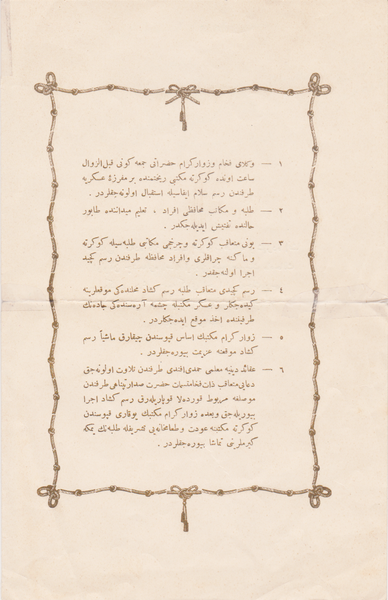 ١ — وکلای فخام وزوار کرام حضراتی جمعه کونی قبل الزوال
ساعت اونده کوکرته مکتبی ریختمنده بر مفرزۀ عسکریه
طرفندن رسم سلام ایفاسیله استقبال اولونه جقلردر.
٢ — طلبه و مکاتب محافظی افراد ، تعلیم میداننده طابور
حالنده تفتیش ایدیله جکدر.
٣ — بونی متعاقب کوکرته وچرخجی مکاتبی طلبه سیله کوکرته
وماکنه چراقلری وافراد محافظه طرفندن رسم کچید
اجرا اولنه جقدر.
٤ — رسم کچیدی متعاقب طلبه رسم کشاد محلنده کی موقعلرینه
کیده جکلر و عسکر مکتبله چشمه آره سنده کی جاده نك
طرفیننده اخذ موقع ایده جکلردر.
٥ — زوار کرام مکتبك اساس قپوسندن چیقارق ماشیاً رسم
کشاد موقعنه عزیمت بیوره جقلردر.
٦ — عقائد دینیه معلمی حمدی افندی طرفندن تلاوت اولونه جق
دعایی متعاقب ذات فخامتسمات حضرت صدارتپناهی طرفندن
موصلغه مربوط قورده لا قوپاریله رق رسم کشاد اجرا
بیوریله جق وبعده زوار کرام مکتبك یوقاری قپوسندن
کوکرته مکتبنه عودت وطعامخانه یی تشریفله طلبه نك یمکه
کیرملرینی تماشا بیوره جقلردر.